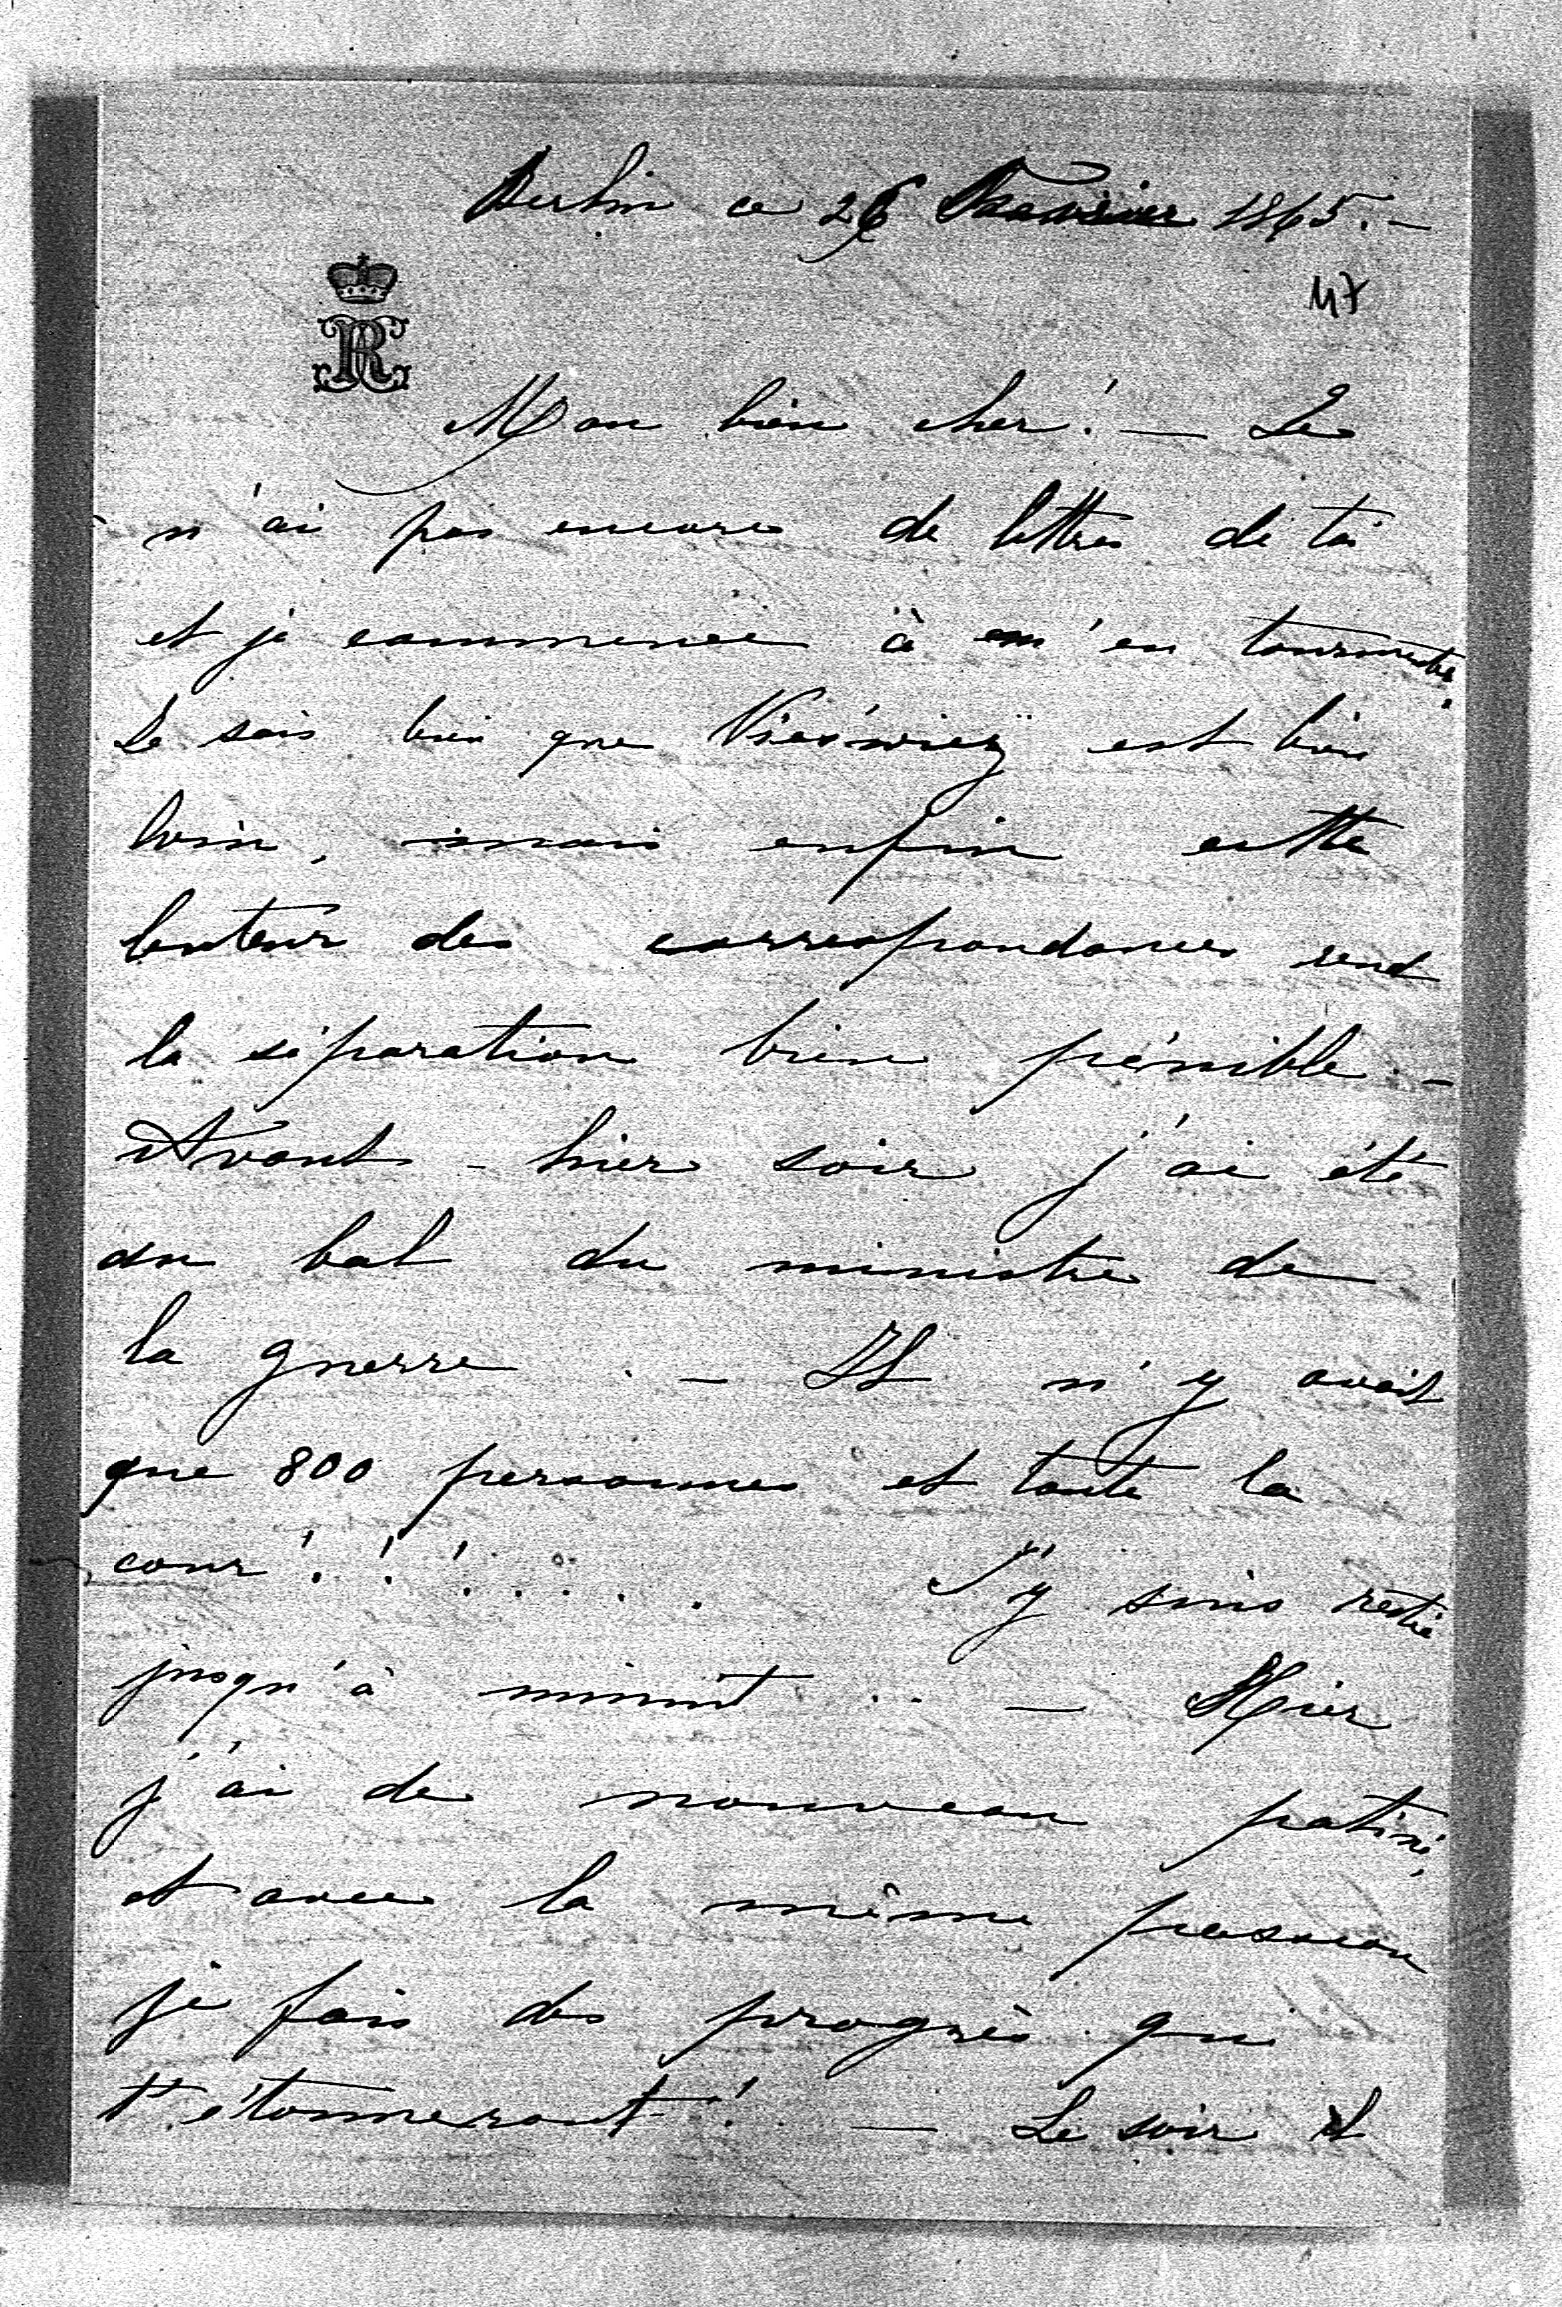 Berlin ce 26 Janvier 1865. –
47
Mon bien cher! — Je
n'ai pas encore de lettres de toi
et je commence à m'en tourmenter.
Je sais bien que est bien
loin, mais enfin cette
lenteur des correspondances rend
la séparation bien pénible. –
Avant-hier soir j'ai été
au bal du ministre de
la guerre. – Il n'y avait
que 800 personnes et toute la
cour! ! ! . . . . J'y suis resté
jusqu'à minuit . . — Hier
j'ai de nouveau patiné,
et avec la même passion
je fais des progrès qui
t'étonneront! — Le soir il